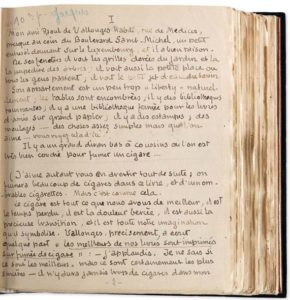 I
Mon ami Raoul de Vallonges habite, rue de Médicis,
presque au coin du Boulevard Saint-Michel, un petit
donnant sur le Luxembourg, et il a bien raison.
De ses fenêtres il voit les grilles, devers du jardin et la
des arbres; il voit aussi la petite place où
tous les gens passent, il voit le jet d'eau du bassin
Son appartement est un peu trop « liberty » naturel-
lement: les tables sont encombrées; il y a des bibliothèques
tournantes; il y a une bibliothèque fermée pour les livres
d'amis sur grand papier; il y a des estampes; des
moulages — des choses assez simples mais quoi! on
aime — vous voyez cela ici
Il y a un grand divan bas à coussins où l'on est
très bien couché pour fumer un cigare —
(J'aime autant vous en avertir tout de suite; on
fumera beaucoup de cigares dans ce livre, et d'innom-
brables cigarettes. Mais c'est comme cela.
Le cigare est tout ce que nous avons de meilleur, il est
le temps perdu, il est la douleur bercée, il est aussi la
précieuse inaction, et il est toute notre imagination
qu'il symbolise. Vallonges, précisément, a écrit
quelque part « les meilleurs de nos livres sont imprimés
sur fumée de cigare » : — j'applaudis. Je ne sais si
ce sont les meilleurs, mais ce sont certainement les plus
— il n'y aura jamais trop de cigares dans mon